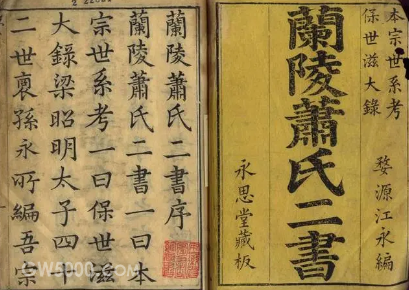 本宗世系考
保世滋大錄
蘭陵蕭氏二書
婺源江永編
永思堂藏板
蘭陵蕭氏二書序
蘭陵蕭氏二書一曰本
宗世系考一曰保世滋
大錄梁昭明太子四十
二世裔孫永所編吾宗
GW5000.com